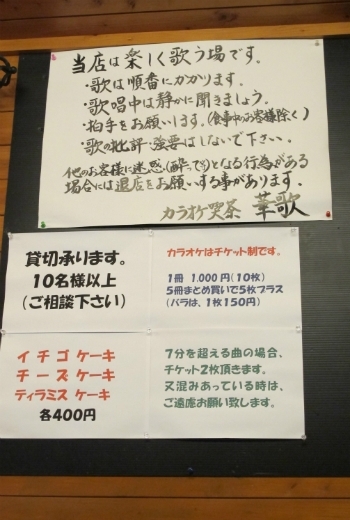 当店は楽しく歌う場です。
・歌は順番にかかります。
・歌唱中は静かに聞きましょう。
・拍手をお願いします。(食事中のお客様除く)
・歌の批評・強要はしないで下さい。
他のお客様に迷惑(酔って)となる行為がある
場合には退店をお願いする事があります。
カラオケ喫茶 華歌
貸切承ります。
10名様以上
(ご相談下さい)
カラオケはチケット制です。
1冊 1.000円(10枚)
5冊まとめ買いで5枚プラス
(バラは、1枚150円)
イチゴ ケーキ
チーズ ケーキ
ティラミス ケーキ
各400円
7分を超える曲の場合、
チケット2枚頂きます。
又混みあっている時は、
ご遠慮お願い致します。